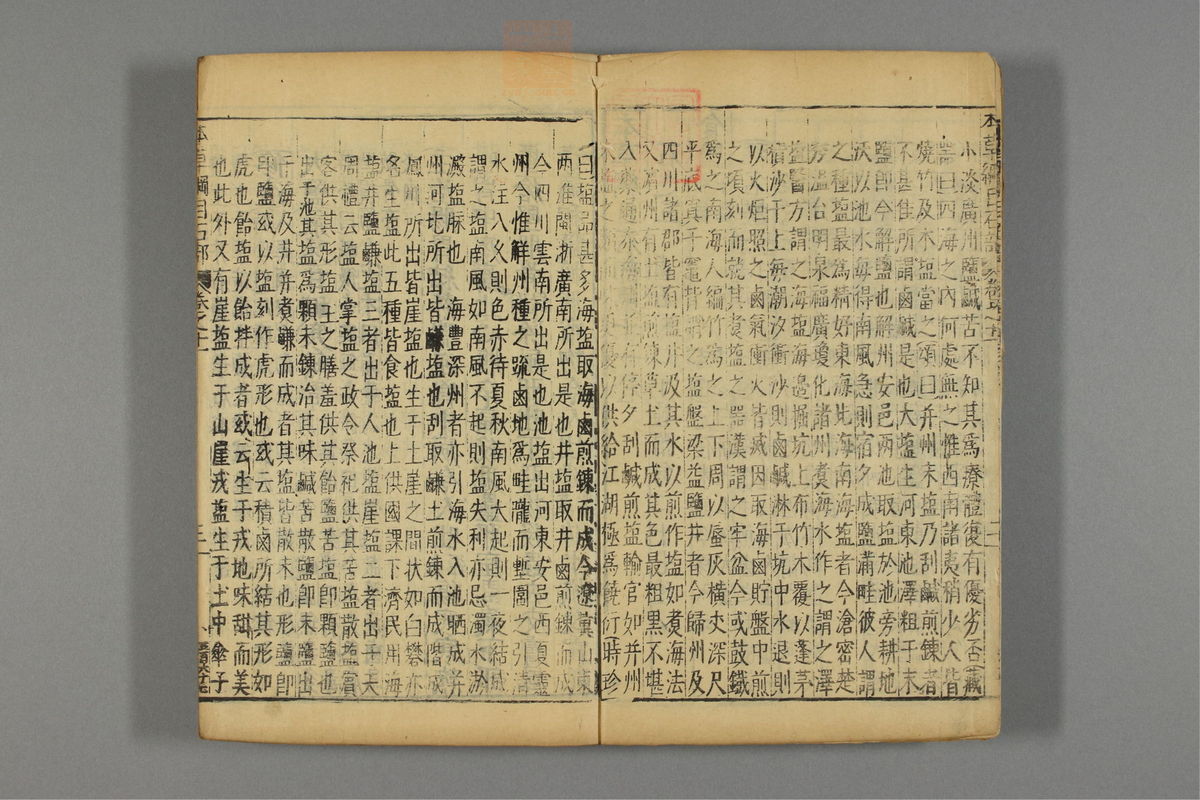 小淡廣州鹽鹹苦不知其爲療體復有優劣否藏
器曰四海之內何處無之惟西南諸夷稍少人皆
燒竹及木塩當之頌曰并州末塩乃刮鹹煎鍊者
不甚佳所謂鹵鹹是也大塩生河東池澤粗于末
鹽即今解鹽也解州安邑兩池取塩於池旁耕地
沃以池水每得南風急則宿夕成鹽滿畦彼人謂
之種塩最爲精好東海北海南海塩者今滄密楚
秀溫台明泉福廣瓊化諸州煑海水作之謂之澤
塩醫方謂之海塩海邊掘坑上布竹木覆以蓬茅
積沙于上每潮汐衝沙則鹵鹹淋于坑中水退則
以火炬照之鹵氣衝火皆滅因取海鹵貯盤中煎
之頃刻而就其煑塩之器漢謂之牢盆今或鼓鐵
爲之南海人編竹爲之上下周以蜃灰橫丈深尺
平底寘于竈背謂之塩盤梁益鹽井者今歸州及
四川諸郡皆有塩井汲其水以煎作塩如煑海法
又濱州有土塩煎鍊草土而成其色最粗黑不堪
入藥通泰海州並有停夕刮鹹煎塩輸官如并州
末塩之類而味乃優以供給江湖極爲饒衍時珍
曰塩品甚多海塩取海鹵煎鍊而成今遼冀山東
兩淮閩浙廣南所出是也井塩取井鹵煎鍊而成
今四川雲南所出是也池塩出河東安邑西夏靈
州今惟解州種之疏鹵地爲畦隴而塹圍之引清
水注入久則色赤待夏秋南風大起則一夜結成
謂之塩南風如南風不起則塩失利亦忌濁水淤
澱塩脉也海豐深州者亦引海水入池晒成并
州河北所出皆鹻塩也刮取鹻土煎鍊而成階成
鳳州所出皆崖塩也生于土崖之間狀如白礬亦
名生塩此五種皆食塩也上供國課下濟民用海
塩井鹽鹻塩三者出于人池塩崖塩二者出于天
周禮云塩人掌塩之政令祭祀供其苦塩散塩賓
客供其形塩王之膳羞供其飴鹽苦塩即顆鹽也
出于池其塩爲顆未鍊治其味鹹苦散鹽即末鹽出
于海及井并煮鹻而成者其塩皆散末也形鹽即
印鹽或以塩刻作虎形也或云積鹵所結其形如
虎也飴鹽以飴拌成者或云生于戎地味甜而美
也此外又有崖塩生于山崖戎塩生于土中傘子
本草綱目石部 卷之十一